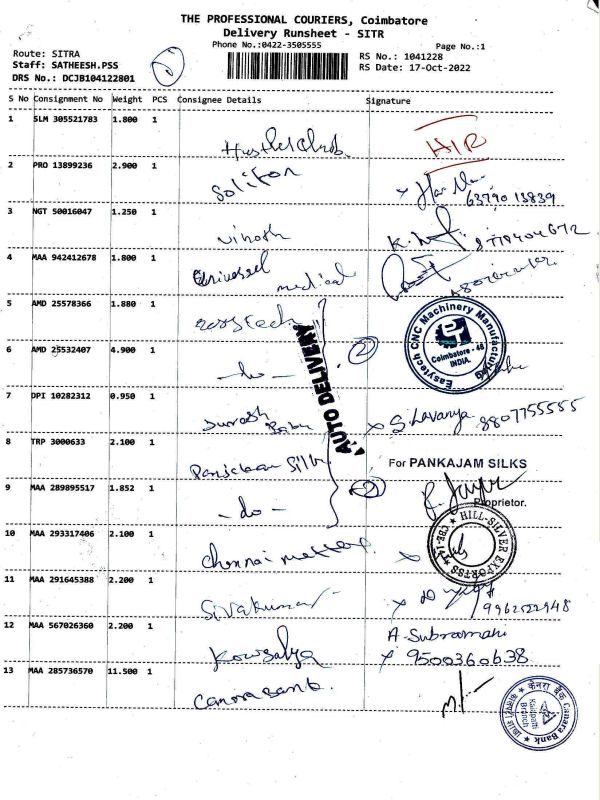 THE PROFESSIONAL COURIERS, Coimbatore
Delivery Runsheet - SITR
Phone No.:0422-3505555
Page No.:1
Route: SITRA
Staff: SATHEESH.PSS
DRS No.: DCJB104122801
RS No.: 1041228
RS Date: 17-Oct-2022
S No Consignment No Weight PCS Consignee Details Signature
1 SLM 305521783 1.800 1
HIR
2 PRO 13899236 2.900 1 Soliton
63790 13839
3 NGT 50016047 1.250 1 Vinoth
4 MAA 942412678 1.800 1 Universal medical
5 AMD 25578366 1.880 1
Easytech CNC Machinery Manufacturing
Coimbatore - 48
INDIA.
AUTO DELIVERY
6 AMD 25532407 4.900 1 - do - 2
7 DPI 10282312 0.950 1 Suresh Babu x S. Lavanya 8807755555
8 TRP 3000633 2.100 1 Pankajam Silks
For PANKAJAM SILKS
9 MAA 289895517 1.852 1 - do - 2
Proprietor.
10 MAA 293317406 2.100 1 Chennai x
HILL-SILVER EXPORTSS
CBE-14
11 MAA 291645388 2.200 1 Sivakumar x
9962522948
12 MAA 567026360 2.200 1 Kowsalya A. Subramani
x 9500360638
13 MAA 285736570 11.500 1 Canara bank
केनरा बैंक Canara Bank
Branch